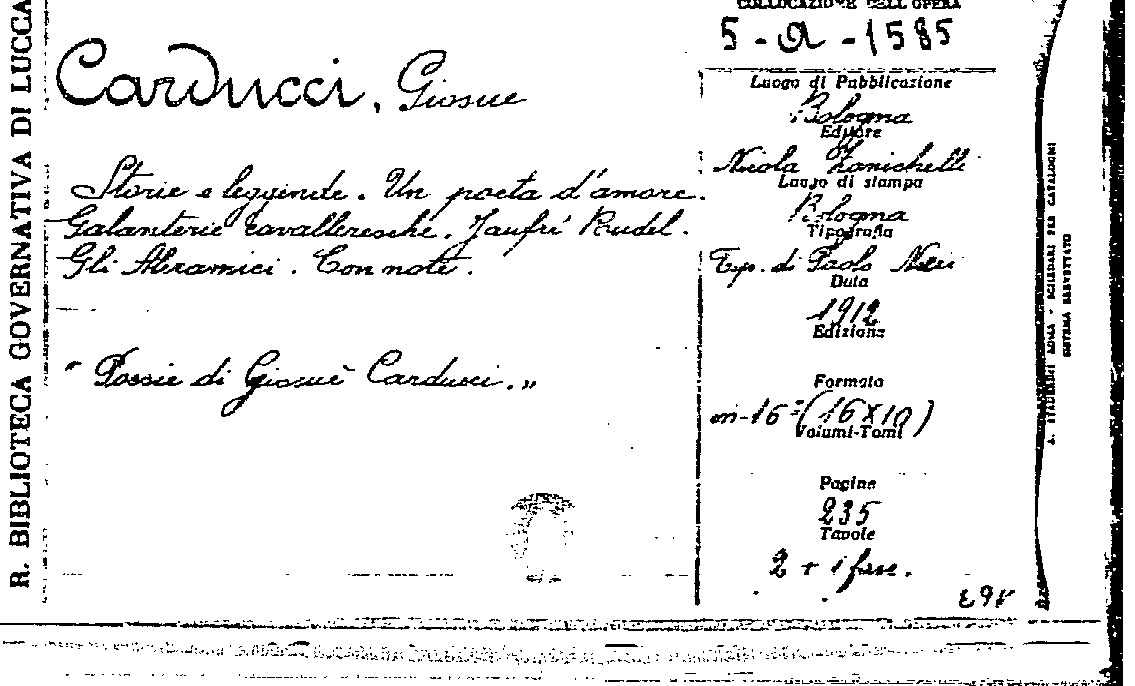 R. BIBLIOTECA GOVERNATIVA DI LUCCA
Carducci, Giosue
Storie e leggende. Un poeta d'amore.
Galanterie cavalleresche. Jaufré Rudel.
Gli Aleramici. Con note.
" Poesie di Giosuè Carducci. "
COLLOCAZIONE DELL'OPERA
5-a-1585
Luogo di Pubblicazione
Bologna
Editore
Nicola Zanichelli
Luogo di stampa
Bologna
Tipografia
Typ. di Paolo Neri
Data
1912
Edizione
Formato
in-16º (16x10)
Volumi-Tomi
Pagine
235
Tavole
2 + 1 facs.
A. STADERINI ROMA - SCHEDARI PER CATALOGHI
SISTEMA BREVETTATO